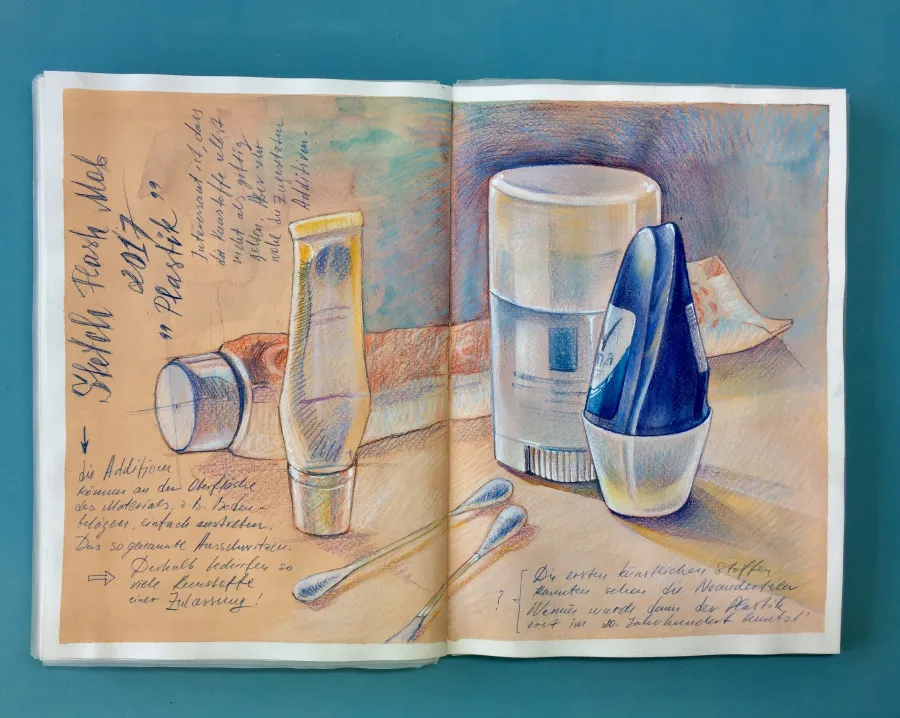 Sketch Flash Mob
2017
"Plastik"
Interessant ist, dass
die Kunstoffe selbst
nicht als giftig
gelten. Aber sehr
wohl die zugesetzten
Additiven.
die Additiven
können an der Oberfläche
des Materials, z.b. Boden-
belägen, einfach austreten.
Das so genannte Ausschwitzen.
Deshalb bedürfen so
viele Kunstoffe
einer Zulassung!
? Die ersten künstlichen Stoffen
kannten schon die Neandertaler
Warum wurde dann der Plastik
erst im 20. Jahrhundert benutzt